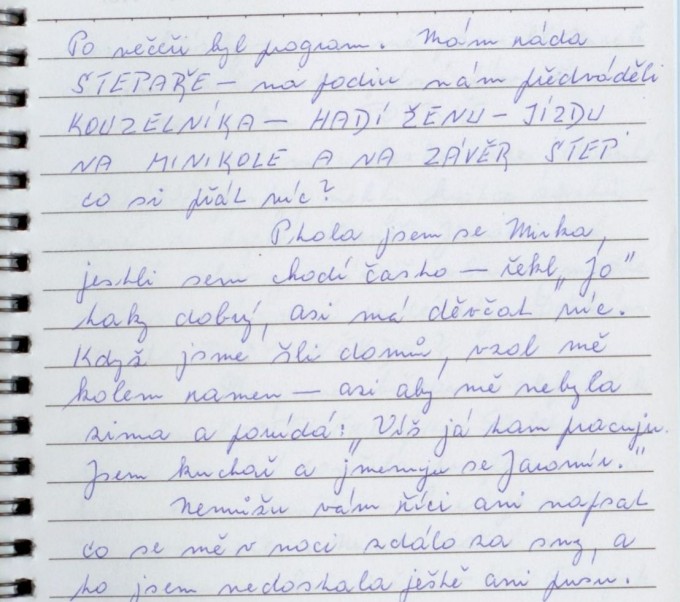 Po večeři byl pogram. Mám ráda
STEPAŘE – na podiu nám předváděli
KOUZELNÍKA – HADÍ ŽENU – JÍZDU
NA MINIKOLE A NA ZÁVĚR STEP
co si přát víc?
Ptala jsem se Mirka,
jestli sem chodí často – řekl „Jo"
taky dobrý, asi má děvčat víc.
Když jsme šli domů, vzal mě
kolem ramen – asi aby mě nebyla
zima a povídá: „Víš já tam pracuju.
Jsem kuchař a jmenuju se Jaromír."
Nemůžu vám říci ani napsat
co se mě v noci zdálo za sny, a
to jsem nedostala ještě ani pusu.